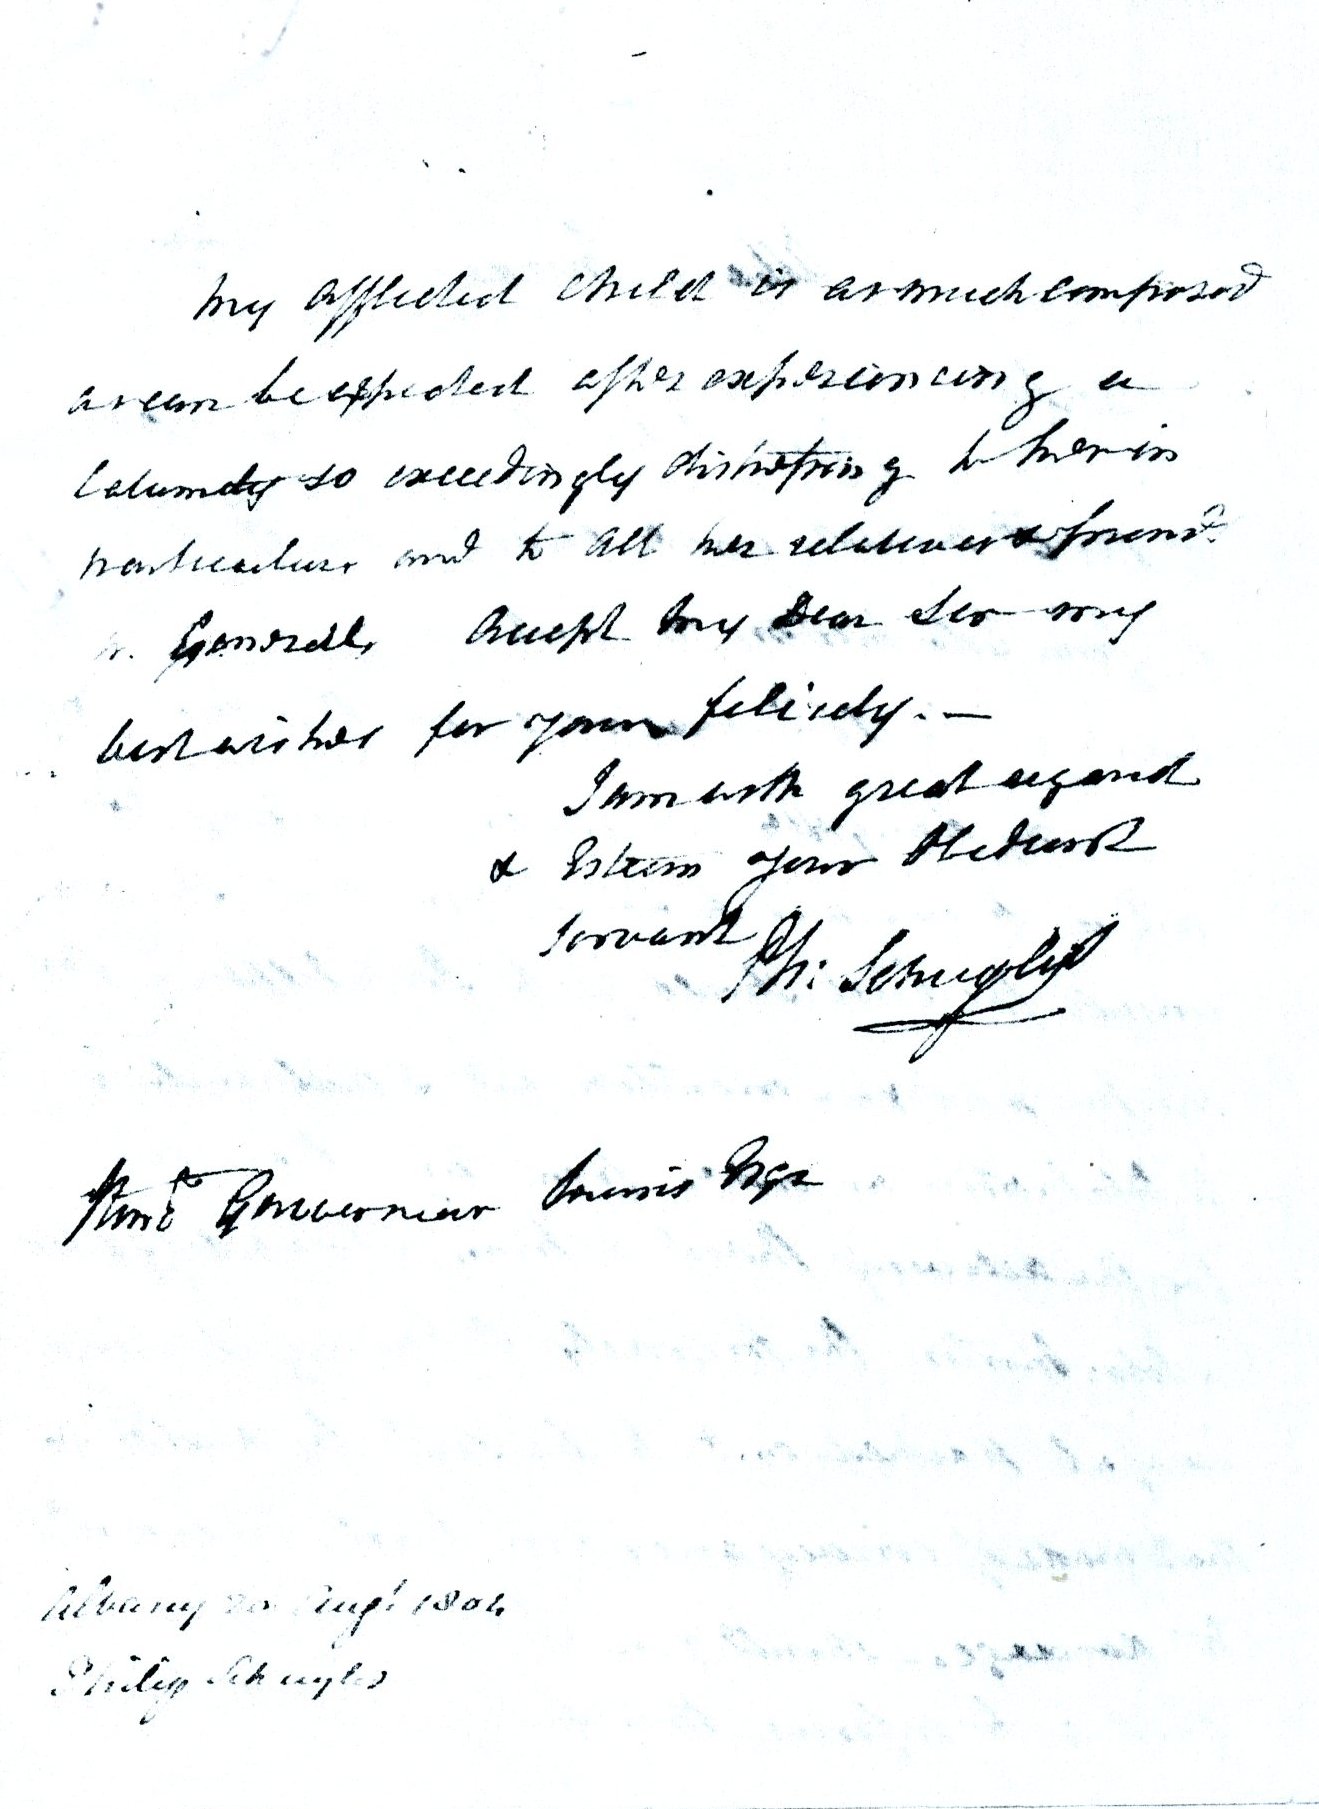 My afflicted Child is as much composed
as can be expected after experiencing a
Calamity so exceedingly distressing to her in
particular and to all her relatives & friends
in General, Accept My Dear Sir my
best wishes for your felicity.—
I am with great regard
& Esteem your Obedient
Servant Ph: Schuyler
Honble Gouverneur Morris Esqr
Albany Augt 1804
Philip Schuyler